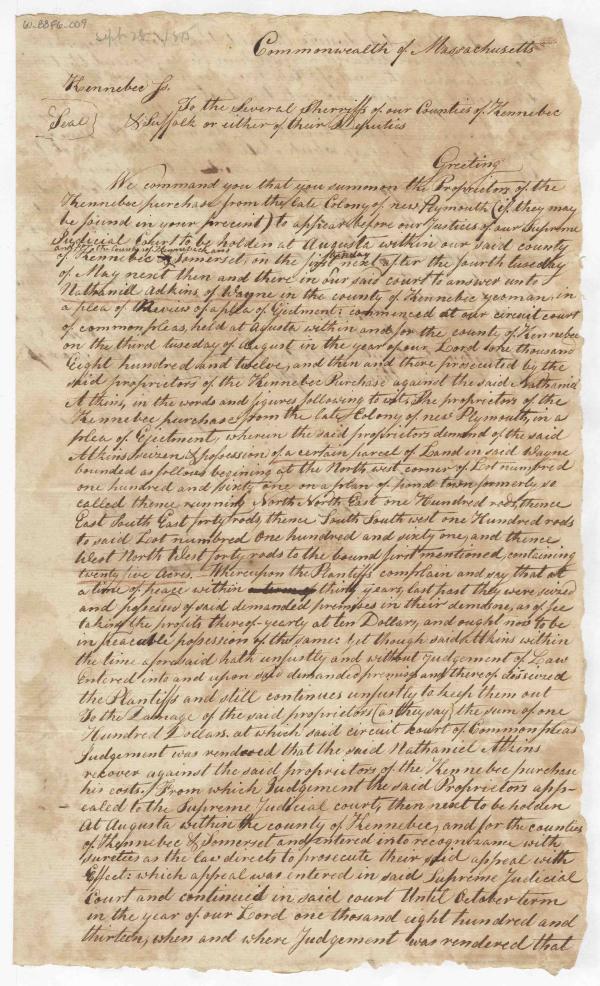 W-BBPG-009
Sept 28
Commonwealth of Massachusetts
Kennebec Ss.
Seal
To the Several Sherriffs of our Counties of Kennebec
& Suffolk or either of their Deputies
Greeting
We command you that you summon the Proprietors of the
Kennebec purchase from the late Colony of new Plymouth (if they may
be found in your precinct) to appear before our Justices of our Supreme
Judicial Court to be holden at Augusta within our said county
and for the County of Kennebeck
of Kennebec & Somerset, on the first next after the fourth tuesday
monday
of May next then and there in our said court to answer unto
Nathaniel Adkins of Wayne in the county of Kennebec yeoman, in
a plea of Review of a plea of Ejectment: commenced at our circuit court
of common pleas, held at Agusta within and for the county of Kennebec
on the third tuseday of August in the year of our Lord one thousand
Eight hundred and twelve, and then and there prosecuted by the
said proprietors of the Kennebec Purchase against the said Nathaniel
Atkins, in the words and figures following to wit, The proprietors of the
Kennebec purchase from the late Colony of new Plymouth, in a
plea of Ejectment, wherein the said proprietors demand of the said
Atkins & possession of a certain parcel of Land in said Wayne
bounded as follows begining at the North west corner of Lot numbred
one hundred and sixty one on a plan of pond town formerly so
called thence running North North East one Hundred rods, thence
East South East forty rods, thence South South west one Hundred rods
to said Lot numbred One hundred and sixty one, and thence
West North West forty rods to the bound first mentioned, containing
twenty five Acres. Whereupon the Plantiffs complain and say that at
a time of peace within thirty years, last past they were seized
and possesed of said demanded premises in their demesne, as of fee
taking the profits thereof yearly at ten Dollars, and ought now to be
in peaceable possession of the same: yet though said Atkins within
the time aforesaid hath unjustly and without judgement of Law
Entered into and upon said demanded premises and thereof disseized
the Plantiffs and still continues unjustly to keep them out
To the Damage of the said proprietors (as they say) the sum of one
Hundred Dollars. at which said circuit Court of Common pleas
Judgement was rendered that the said Nathaniel Atkins
rekover against the said proprietors of the Kennebec purchase
his costs/ From which Judgement the said Proprietors app-
ealed to the Supreme Judicial court, then next to be holden
At Augusta within the county of Kennebec, and for the counties
of Kennebec & Somerset and entered into recognizance with
sureties as the law directs to prosecute their said appeal with
Effect: which appeal was entered in said Supreme Judicial
Court and continued in said court Until October term
in the year of our Lord one thosand eight hundred and
thirteen, when and where Judgement was rendered that